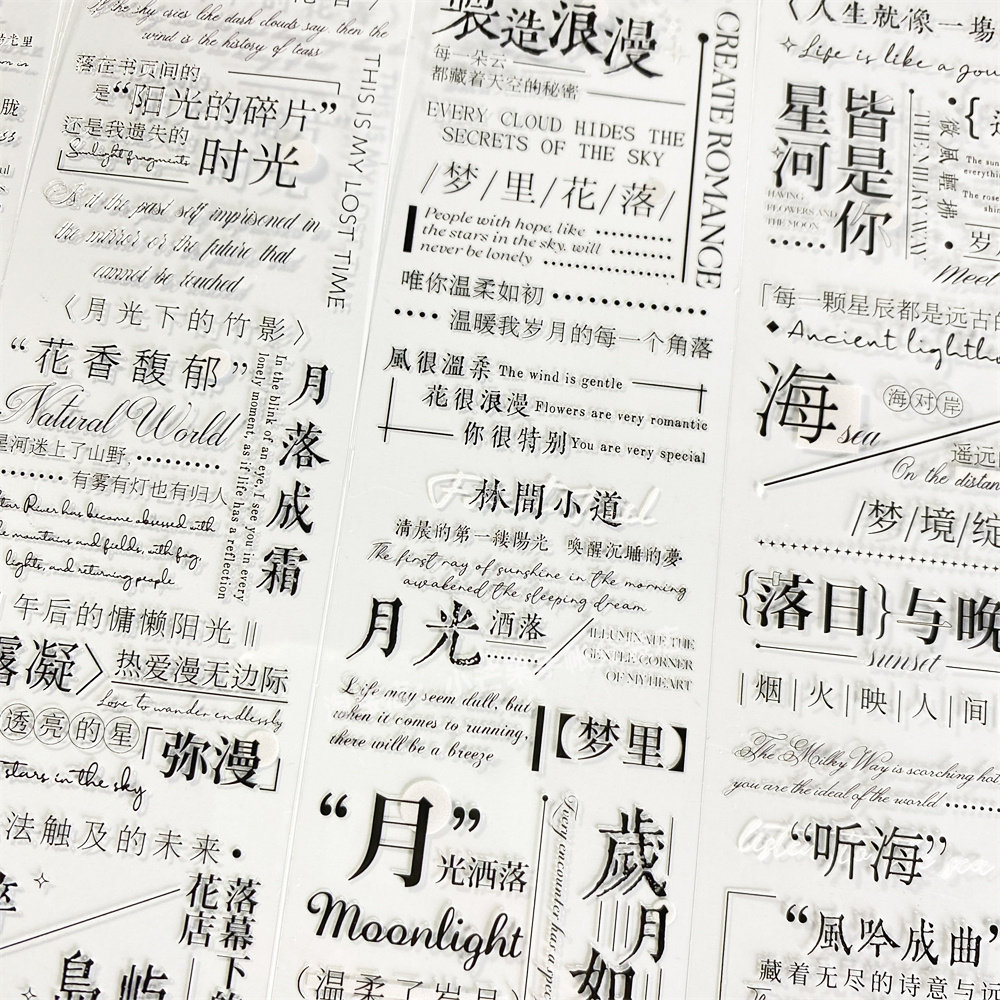 If the sky cries like dark clouds say, then the
wind is the history of tears
落在书页间的
是“阳光的碎片”
还是我遗失的
Sunlight fragments
时光
THIS IS MY LOST TIME
Is it the past self imprisoned in
the mirror or the future that
cannot be touched
〈月光下的竹影〉
“花香馥郁”
Natural World
星河迷上了山野,
有雾有灯也有归人
Star River has become obsessed with
the mountains and fields, with fog,
lights, and returning people
In the blink of an eye, I see you in every
lonely moment, as if life has a reflection
月落成霜
午后的慵懒阳光
凝〉
热爱漫无边际
Love to wander endlessly
透亮的星
「弥漫」
stars in the sky
法触及的未来
落幕
花店
島屿
製造浪漫
每一朵云
都藏着天空的秘密
EVERY CLOUD HIDES THE
SECRETS OF THE SKY
CREATE ROMANCE
/梦/里/花/落/
People with hope, like
the stars in the sky, will
never be lonely
唯你温柔如初
温暖我岁月的每一个角落
風很溫柔 The wind is gentle
花很浪漫 Flowers are very romantic
你很特别 You are very special
林間小道
清晨的第一缕陽光 唤醒沉睡的夢
The first ray of sunshine in the morning
awakened the sleeping dream
月光
洒落
ILLUMINATE THE
GENTLE CORNER
OF MY HEART
Life may seem dull, but
when it comes to running,
there will be a breeze
【梦里】
“月”
光洒落
Moonlight
(温柔了岁月
Every encounter has a spec
歲月如
〈人生就像一場
Life is like a
星河
皆是你
HAVING
FLOWERS AND
THE MOON
THE MILKY WAY
微風輕拂
The sun
everything
The rose
岁
Meet
「每一颗星辰都是远古的
Ancient lighth
海
sea
海对岸
遥远
On the distan
/梦/境/绽
{落日}与晚
sunset
|烟|火|映|人|间
The Milky Way is scorching hot
you are the ideal of the world
“听海”
“風吟成曲”
藏着无尽的诗意与远